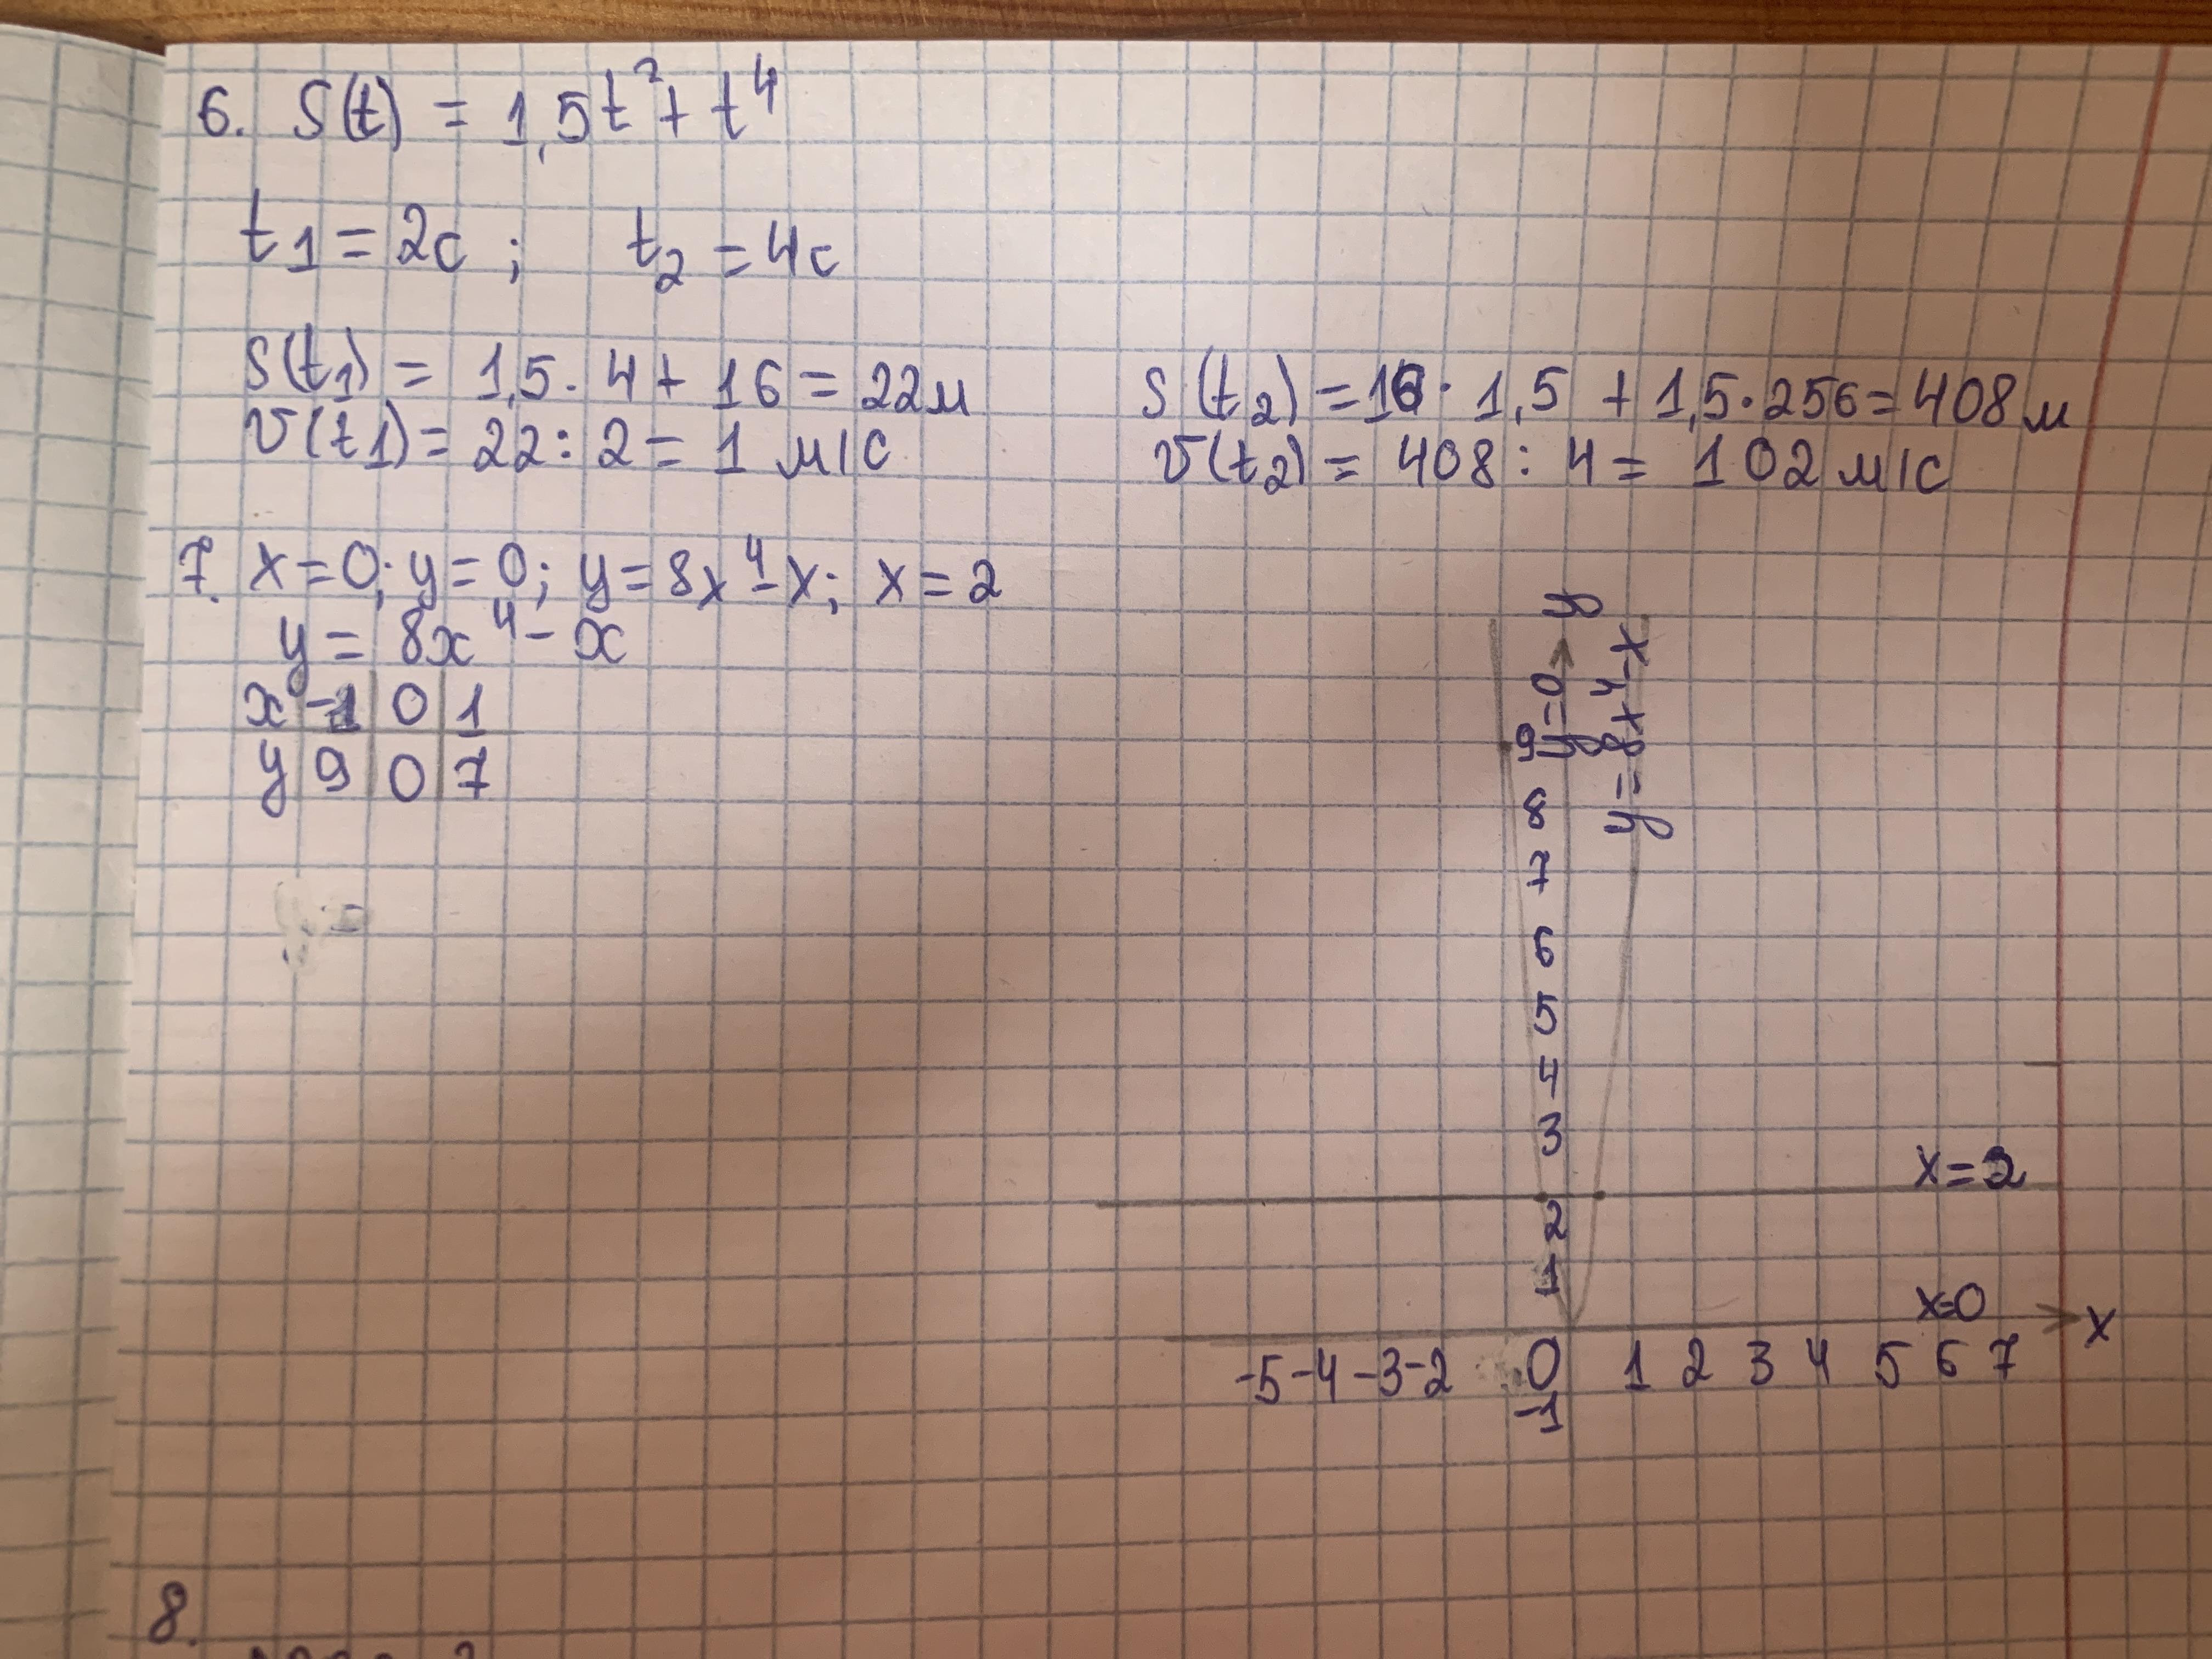 6. S(t) = 1,5t² + t⁴
t₁ = 2с ; t₂ = 4с
S(t₁) = 1,5 · 4 + 16 = 22м
v(t₁) = 22 : 2 = 1 м/с
S(t₂) = 16 · 1,5 + 1,5 · 256 = 408 м
v(t₂) = 408 : 4 = 102 м/с
7. x = 0; y = 0; y = 8x⁴ - x; x = 2
y = 8x⁴ - x
x -1 0 1
y 9 0 7
y
y=0
y = 8x⁴-x
9
8
7
6
5
4
3
x=2
2
1
x=0
x
-5 -4 -3 -2 0 1 2 3 4 5 6 7
-1
8.